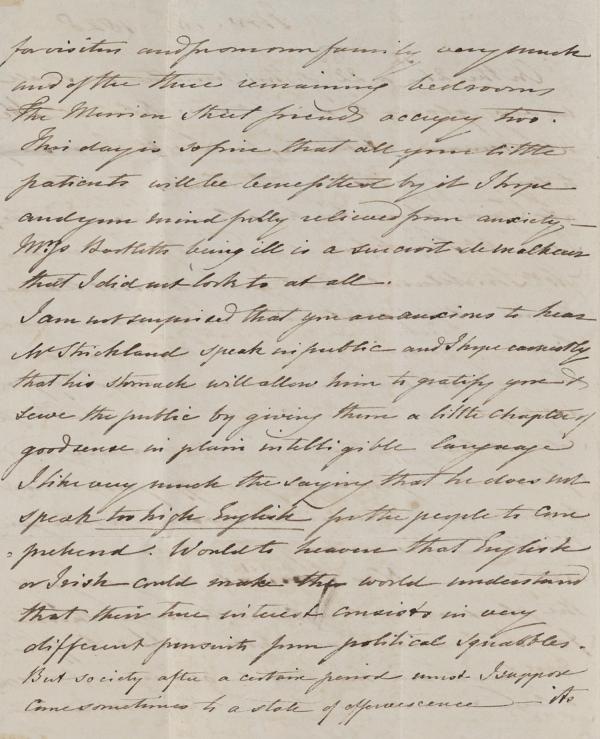 for visitors and from our family very much
and of the three remaining bedrooms
The Merrion Street friends occupy two.
This day is so fine that all your little
patients will be benefitted by it I hope
and your mind fully relieved from anxiety —
Miss Bartletts being ill is a surcroit de malheur
that I did not look to at all.
I am not surprised that you are anxious to hear
Mr Strickland speak in public and I hope earnestly
that his stomach will allow him to gratify you &
serve the public by giving them a little chapter of
good sense in plain intelligible language
I like very much the saying that he does not
speak too high English for the people to com
prehend. Would to heaven that English
or Irish could make the world understand
that their true interest consists in very
different pursuits from political squabbles.
But society after a certain period must I suppose
come sometimes to a state of effervescence — As